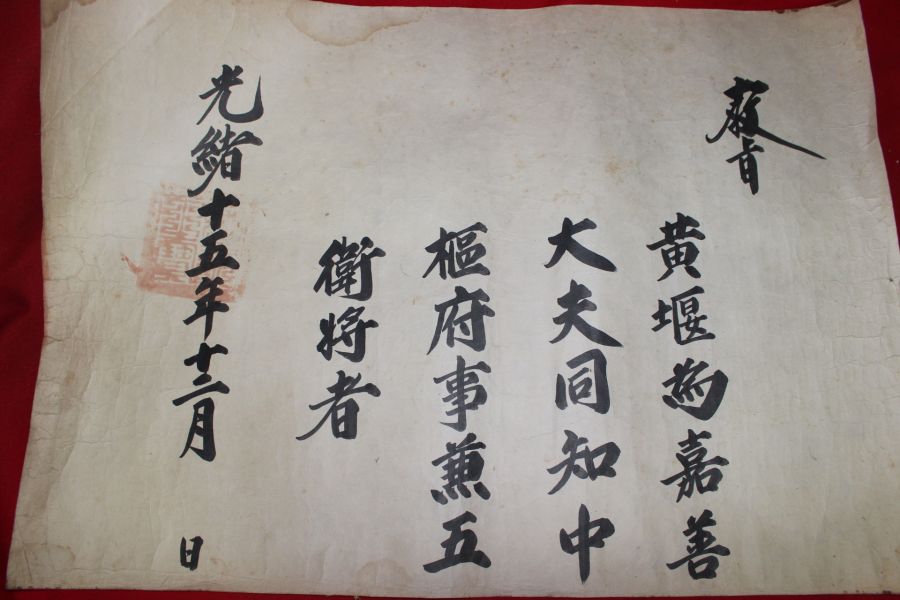 教旨
黄堰為嘉善
大夫同知中
樞府事兼五
衛將者
光緒十五年十二月 日